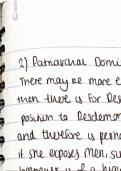 2) Patriarchal Domi
There may be more e
then there is for Des
position to Desdemon
and therefore is perha
if she exposes Men, su